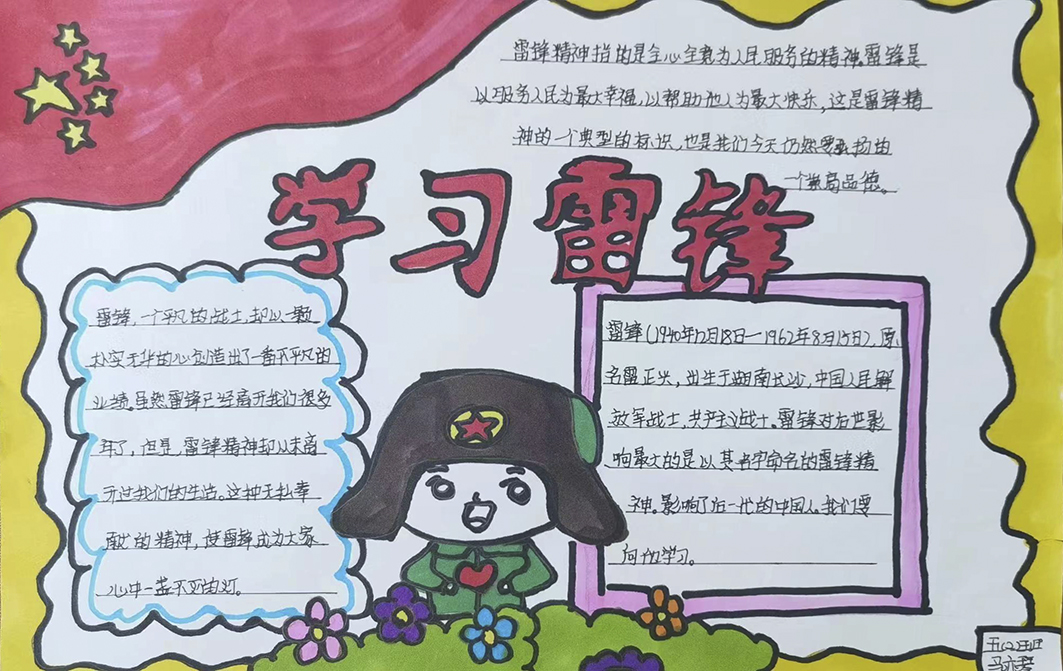 雷锋精神指的是全心全意为人民服务的精神。雷锋是
以服务人民为最大幸福,以帮助他人为最大快乐,这是雷锋精
神的一个典型的标识,也是我们今天仍然要弘扬的
一个崇高品德。
学习雷锋
雷锋,一个平凡的战士,却以一颗
朴实无华的心创造出了一番不平凡的
业绩。虽然雷锋已经离开我们很多
年了,但是,雷锋精神却以未离
开过我们的生活。这种无私奉
献的精神,使雷锋成为大家
心中一盏不灭的灯。
雷锋(1940年12月18日—1962年8月15日),原
名雷正兴,出生于湖南长沙,中国人民解
放军战士,共产主义战士。雷锋对后世影
响最大的是以其名字命名的雷锋精
神。影响了后一代的中国人。我们要
向他学习。
五(2)班